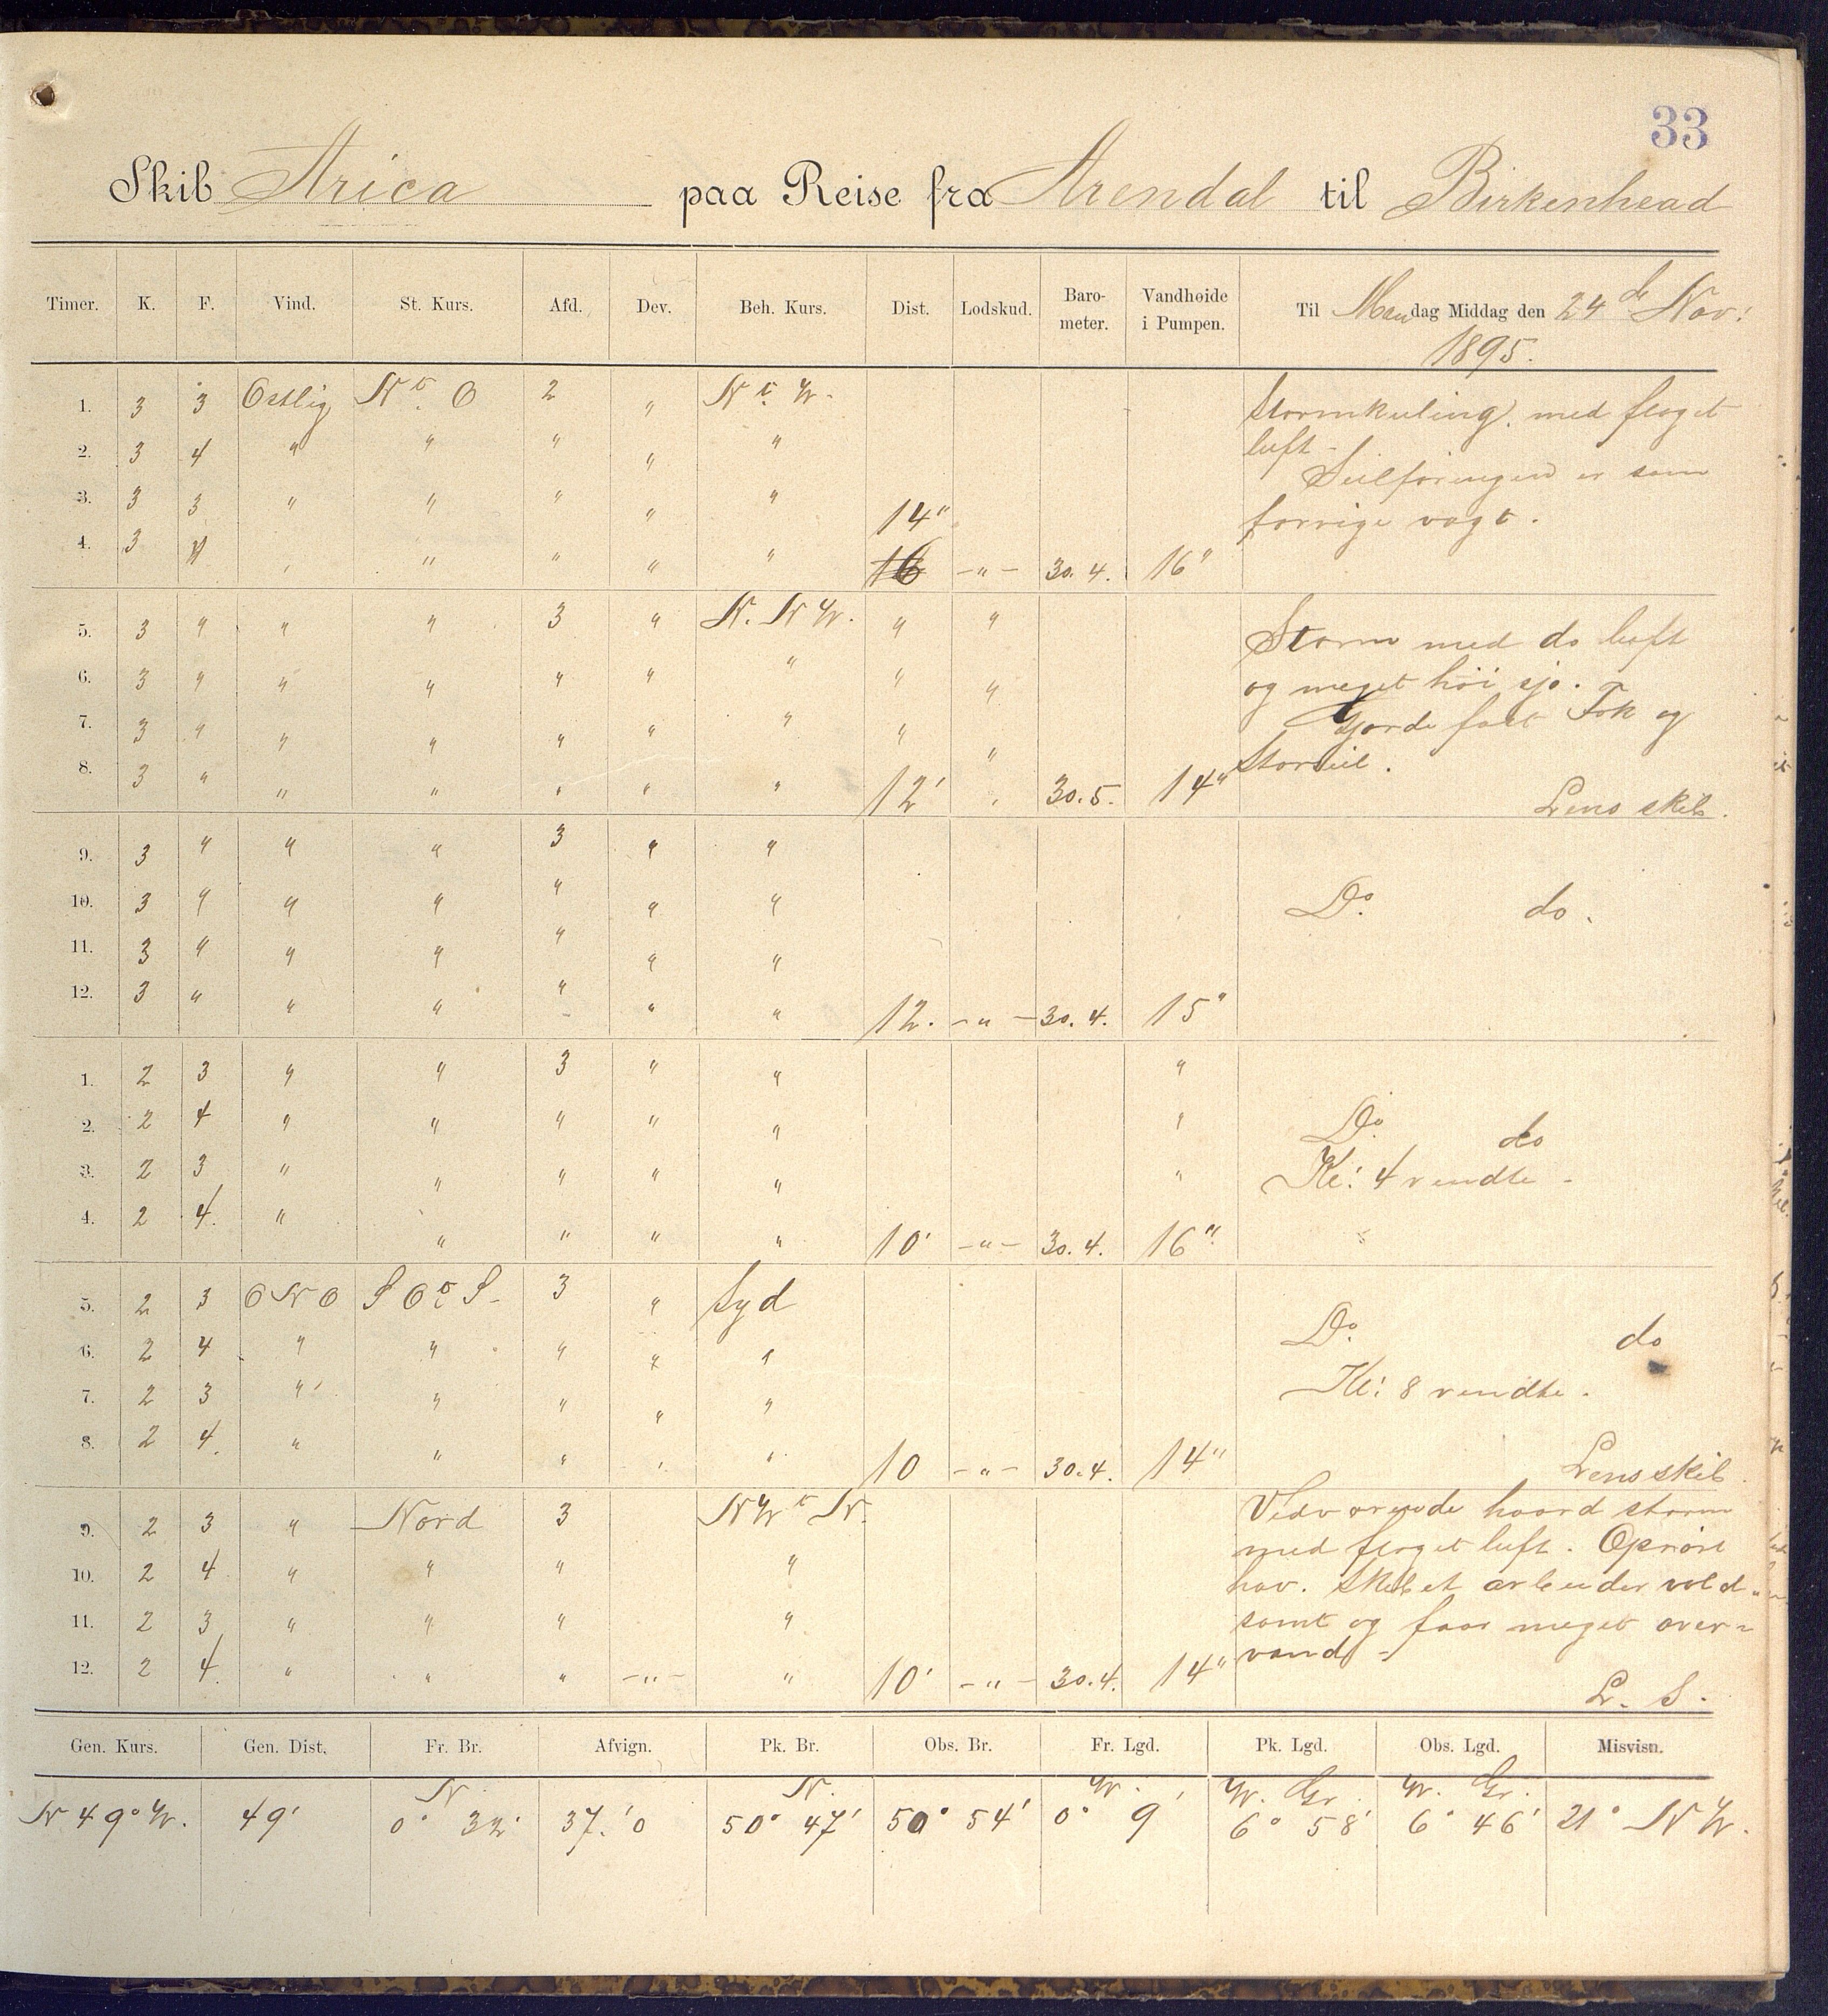 33
Skib Arica paa Reise fra Arendal til Birkenhead
Timer. K. F. Vind. St. Kurs. Afd. Dev. Beh. Kurs. Dist. Lodskud. Baro-meter. Vandhøide i Pumpen. Til Mandag Middag den 24 de Nov:
1895.
1. 3 3 Ostlig N t. O 2 " N t. W. Stormkuling. med floget
2. 3 4 " " " " " luft -
Seilføringen er som
3. 3 3 " " " " " 14" forrige vagt.
4. 3 4 " " " " " 16 -"- 30.4. 16"
5. 3 " " " 3 " N. N W. " " Storm med do luft
6. 3 " " " " " " " " og meget høi sjø. -
7. 3 " " " " " " " " Gjorde fast Fok og
8. 3 " " " " " " 12' " 30.5. 14" Storseil.
Lens skib.
9. 3 " " " 3 " "
10. 3 " " " " " " Do. do.
11. 3 " " " " " "
12. 3 " " " " " " 12. -"- 30.4. 15"
1. 2 3 " " 3 " " "
2. 2 4 " " " " " " Do. do
3. 2 3 " " " " " " Kl: 4 vendte -
4. 2 4. " " " " " 10' -"- 30.4. 16"
5. 2 3 O N O S O t. S - 3 " Syd
6. 2 4 " " " " " Do. do
7. 2 3 " " " " " Kl: 8 vendte.
8. 2 4. " " " " " 10 -"- 30.4. 14" Lens skib
9. 2 3 " Nord 3 N W t N. Vedvarende haard storm
10. 2 4 " " " " med floget luft. Oprørt
hav. Skibet arbeider vold-
11. 2 3 " " " " somt og faar meget over-
12. 2 4. " " " -"- " 10' -"- 30.4. 14" vand -
L. S.
Gen. Kurs. Gen. Dist. Fr. Br. Afvign. Pk. Br. Obs. Br. Fr. Lgd. Pk. Lgd. Obs. Lgd. Misvisn.
N. N. W. W. Gr. W. Gr.
N 49° W. 49' 0° 32' 37.'0 50° 47' 50° 54' 0° 9' 6° 58' 6° 46' 21° N W.